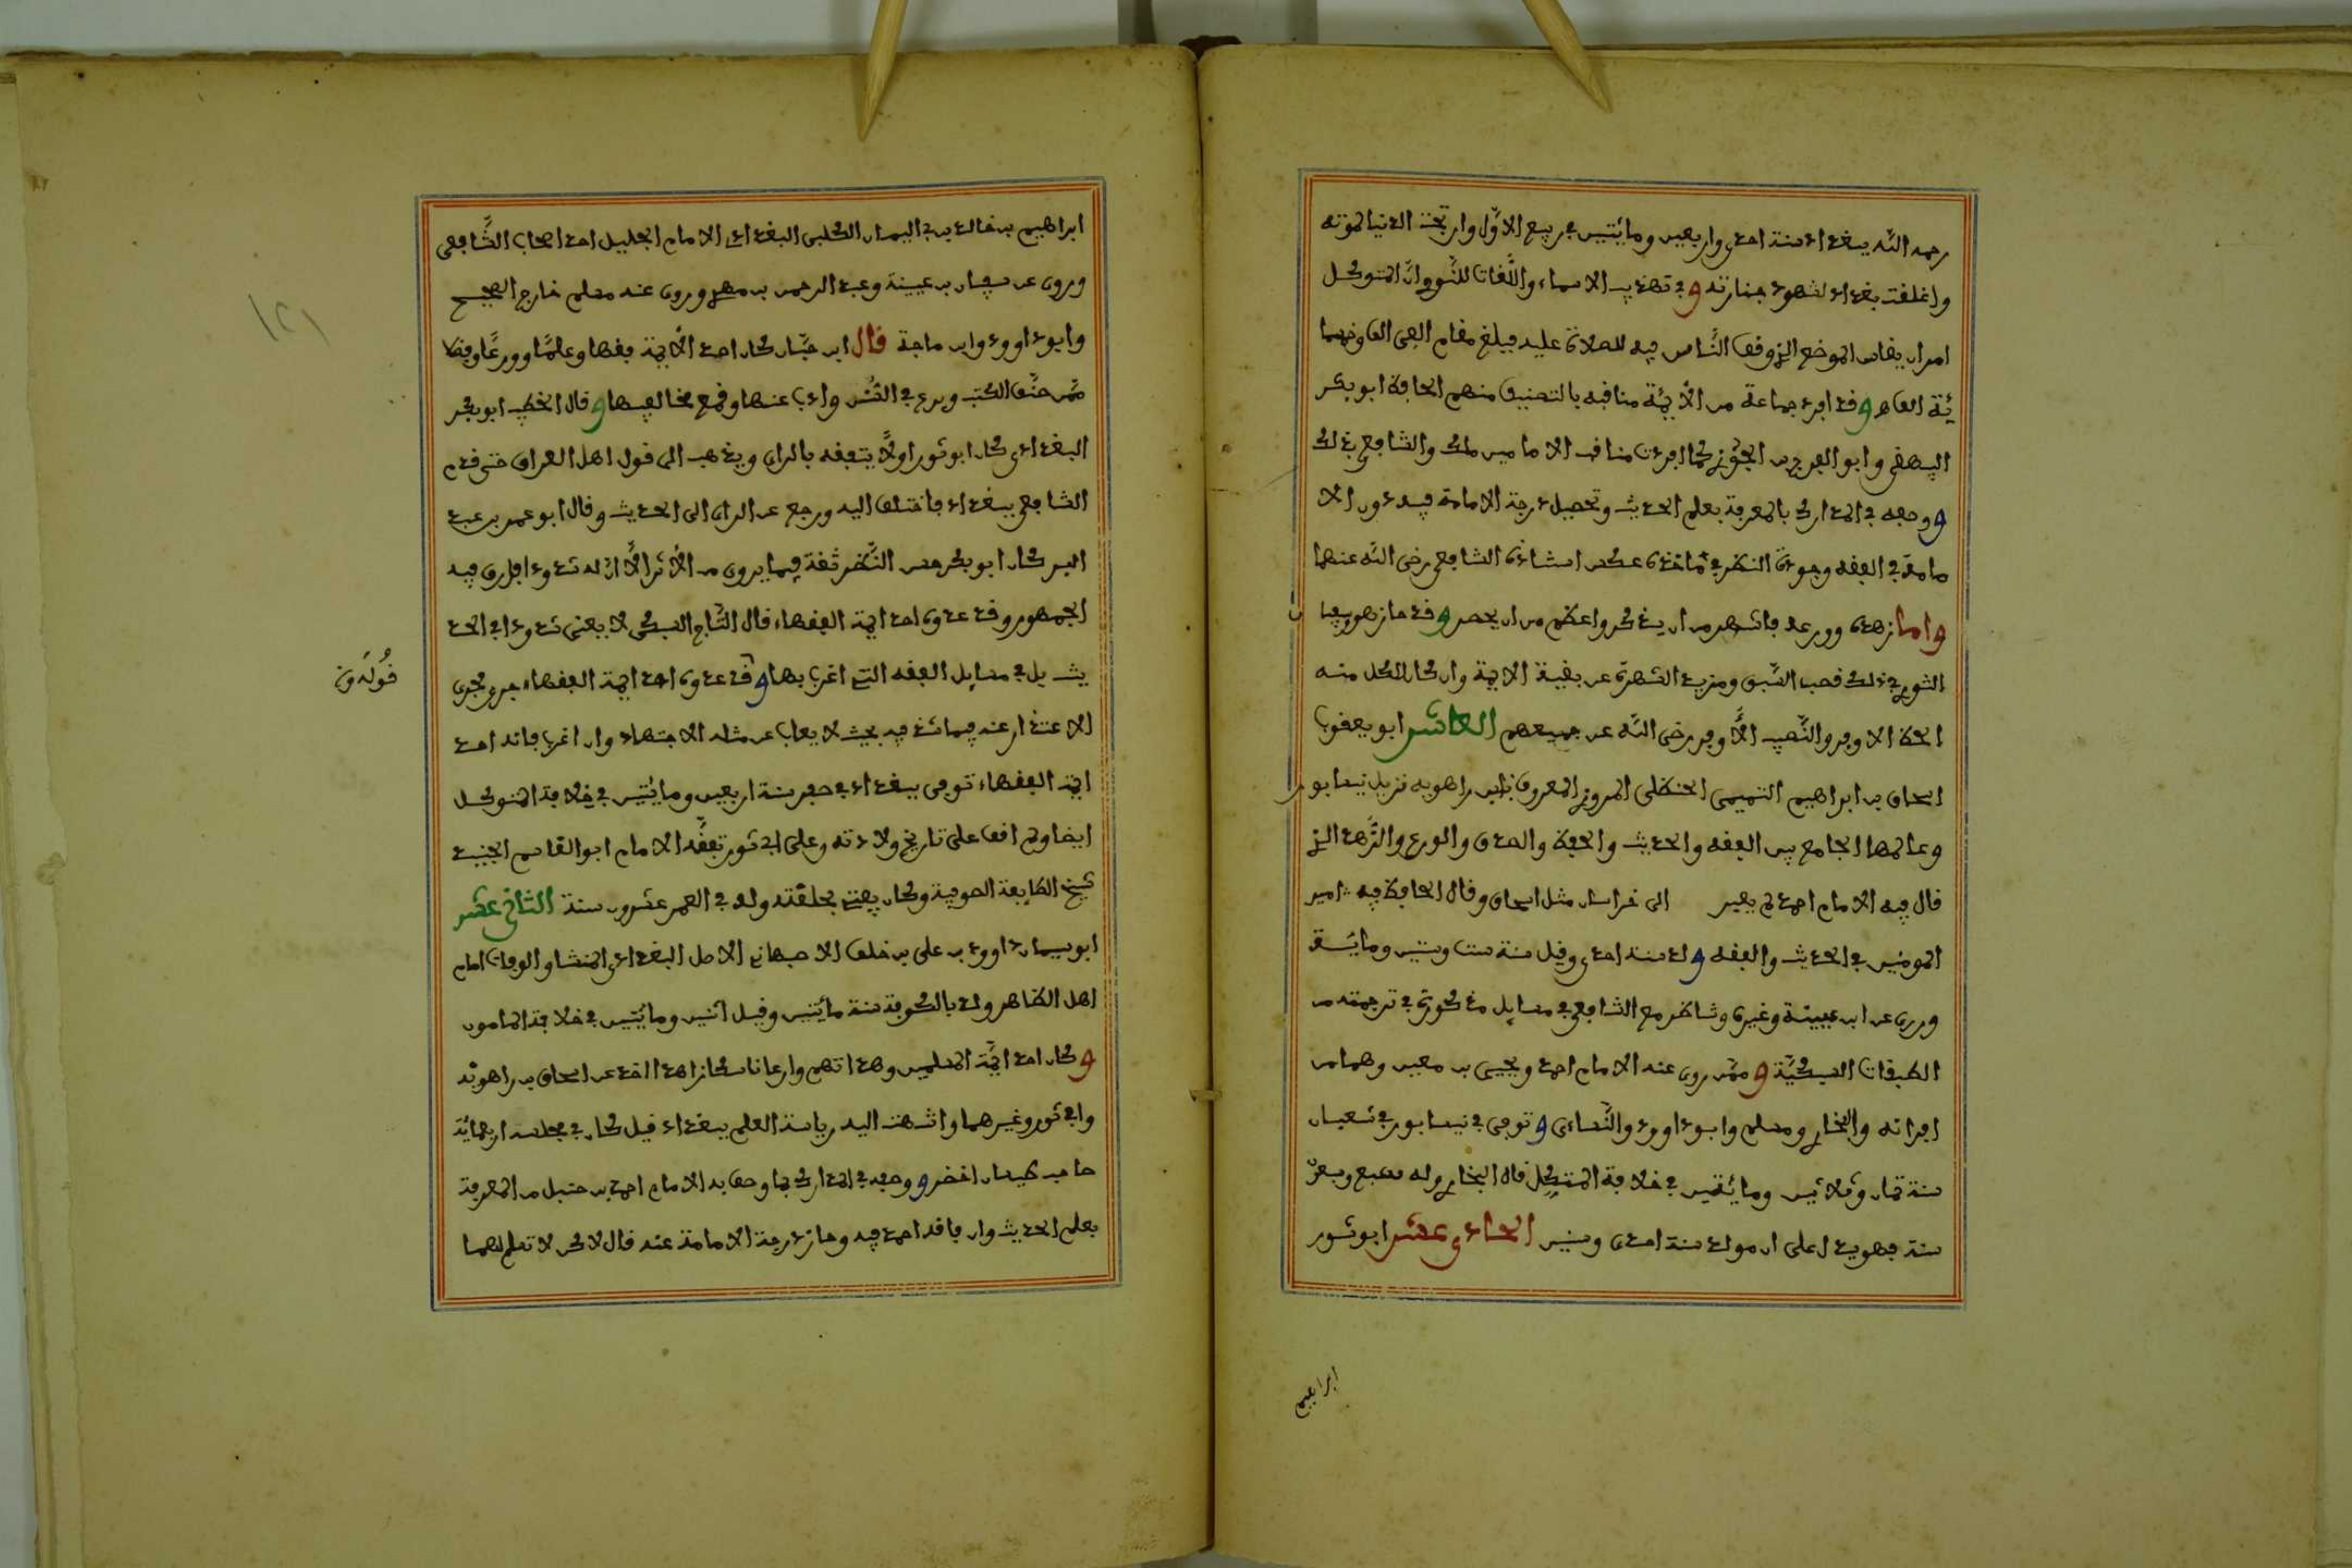 رحمه الله ببغداد سنة احدى واربعين ومائتين في ربيع الاول وارتجت الدنيا لموته
واغلقت بغداد لشهود جنازته وفي تهذيب الاسماء واللغات للنووي ان المتوكل
امر ان يقاس الموضع الذي وقف الناس فيه للصلاة عليه فبلغ مقام الفي الف وخمسما
ئة الف وقد افرد جماعة من الأيمة مناقبه بالتصنيف منهم الحافظ ابو بكر
البيهقي وابو الفرج بن الجوزي كما افردت مناقب الامامين ملك والشافعي بذلك
ووصفه في المدارك بالمعرفة بعلم الحديث وتحصيل درجة الامامة فيه دون الا
مامة في الفقه وجودة النظر في مأخذه عكس استاذه الشافعي رضي الله عنهما
واما زهده وورعه فاشهر من ان يذكر واعظم من ان يحصر وقد حاز هو وسفيان
الثوري في ذلك قصب السبق ومزيد الشهرة عن بقية الايمة وان كان لكل منه
الحظ الاوفر والنصيب الأوفر رضي الله عن جميعهم العاشر ابو يعقوب
اسحاق بن ابراهيم التميمي الحنظلي المروزي المعروف بابن راهويه نزيل نيسابور
وعالمها الجامع بين الفقه والحديث والحفظ والصدق والورع والزهد الذي
قال فيه الامام احمد لم يعبر الى خراسان مثل اسحاق وقال الحافظ فيه امير
المومنين في الحديث والفقه ولد سنة احدى وقيل سنة ست وستين ومائة
وروى عن ابن عيينة وغيره وتناظر مع الشافعي في مسايل مذكورة في ترجمته من
الطبقات السبكية وممن روى عنه الامام احمد ويحيى بن معين وهما من
اقرانه والبخاري ومسلم وابو داوود والنساءى وتوفي في نيسابور في شعبان
سنة ثمان وثلاثين ومائتين في خلافة المتوكل قاله البخاري وله سبع وسبعون
سنة فهو يدل على ان مولده سنة احدى وستين الحادي عشر ابو ثور
ابراهيم
ابراهيم بن خالد بن ابي اليمان الكلبي البغدادي الامام الجليل احد اصحاب الشافعي
وروى عن سفيان بن عيينة وعبد الرحمن بن مهدي وروى عنه مسلم خارج الصحيح
وابو داوود وابن ماجة قال ابن حبان كان احد الأيمة فقها وعلما وورعا وفضلا
ممن صنف الكتب وبرع في السنن وذب عنها وقمع مخالفيها وقال الخطيب ابو بكر
البغدادي كان ابو ثور اولا يتفقه بالراي ويذهب الى قول اهل العراق حتى قدم
الشافعي ببغداد فاختلف اليه ورجع عن الراي الى الحديث وقال ابو عمر بن عبد
البر كان ابو بكر حسن النظر ثقة فيما يروى من الأثر الا ان له شذوذا فارق فيه
الجمهور وقد عدوه احد ايمة الفقهاء قال التاج السبكي لا يعنى شذوذا في الحد
يث بل في مسايل الفقه التي اغرب بها وقد عدوه احد ايمة الفقهاء جرى مجرى
قوله وقد
الاعتذار عنه فيما شذ فيه بحيث لا يعاب عن مثله الاجتهاد وان اغرب فانه احد
ايمة الفقهاء توفي ببغداد في صفر سنة اربعين ومائتين في خلافة المتوكل
ايضا ولم اقف على تاريخ ولادته وعلى ابي ثور تفقه الامام ابو القاسم الجنيد
شيخ الطايفة الصوفية وكان يفتي بحلقته وله في العمر عشرون سنة الثاني عشر
ابو سليمان داوود بن علي بن خلف الاصبهاني الاصل البغدادي المنشا والوفات امام
اهل الظاهر ولد بالكوفة سنة مائتين وقيل اثنين ومائتين في خلافة المامون
وكان احد ايمة المسلمين وهداتهم وارعا ناسكا زاهدا اخذ عن اسحاق بن راهويه
وابي ثور وغيرهما وانتهت اليه رياسة العلم ببغداد قيل كان في مجلسه اربعمائة
صاحب طيلسان اخضر ووصفه في المدارك بما وصف به الامام احمد بن حنبل من المعرفة
بعلم الحديث وان فاقه احمد فيه وحاز درجة الامامة عنه قال لاكن لا تعلم لهما
١٢١